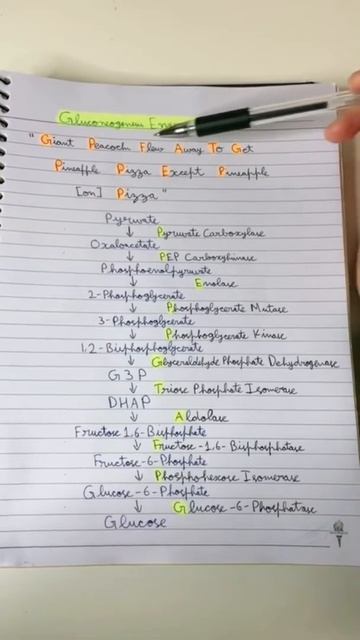 Gluconeogenesis
"Giant Peacocks Flew Away To Get
Pineapple Pizza Except Pineapple
[on] Pizza"
Pyruvate
↓ Pyruvate Carboxylase
Oxaloacetate
↓ PEP Carboxykinase
Phosphoenolpyruvate
↓ Enolase
2-Phosphoglycerate
↓ Phosphoglycerate Mutase
3-Phosphoglycerate
↓ Phosphoglycerate Kinase
1,2-Bisphosphoglycerate
↓ Glyceraldehyde Phosphate Dehydrogenase
G3P
↓ Triose Phosphate Isomerase
DHAP
↓ Aldolase
Fructose 1,6-Bisphosphate
↓ Fructose-1,6-Bisphosphatase
Fructose-6-Phosphate
↓ Phosphohexose Isomerase
Glucose-6-Phosphate
↓ Glucose-6-Phosphatase
Glucose